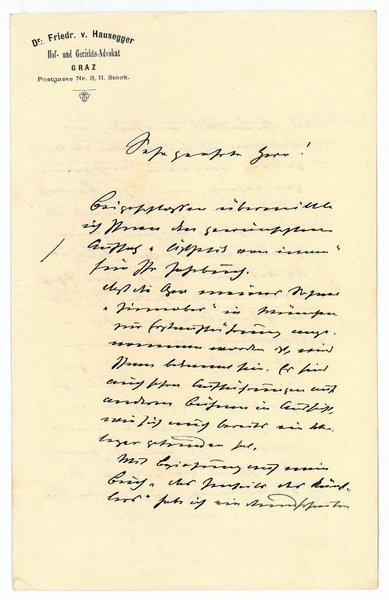 Dr. Friedr. v. Hausegger
Hof- und Gerichts-Advokat
GRAZ
Postgasse Nr. 3, II. Stock.
Sehr geehrter Herr!
Beigeschlossen übermittle
ich Ihnen den gewünschten
Aufsatz „Aesthetik von innen“
für Ihr Jahrbuch.
Daß die Oper meines Sohnes
„Zinnober“ in München
zur Erstaufführung ange-
nommen worden ist, wird
Ihnen bekannt sein. Es sind
auch schon Aufführungen auf
anderen Bühnen in Aussicht,
wie sich auch bereits ein Ver-
leger gefunden hat.
Mit Beziehung auf mein
Buch „Das Jenseits des Künst-
lers“ habe ich ein